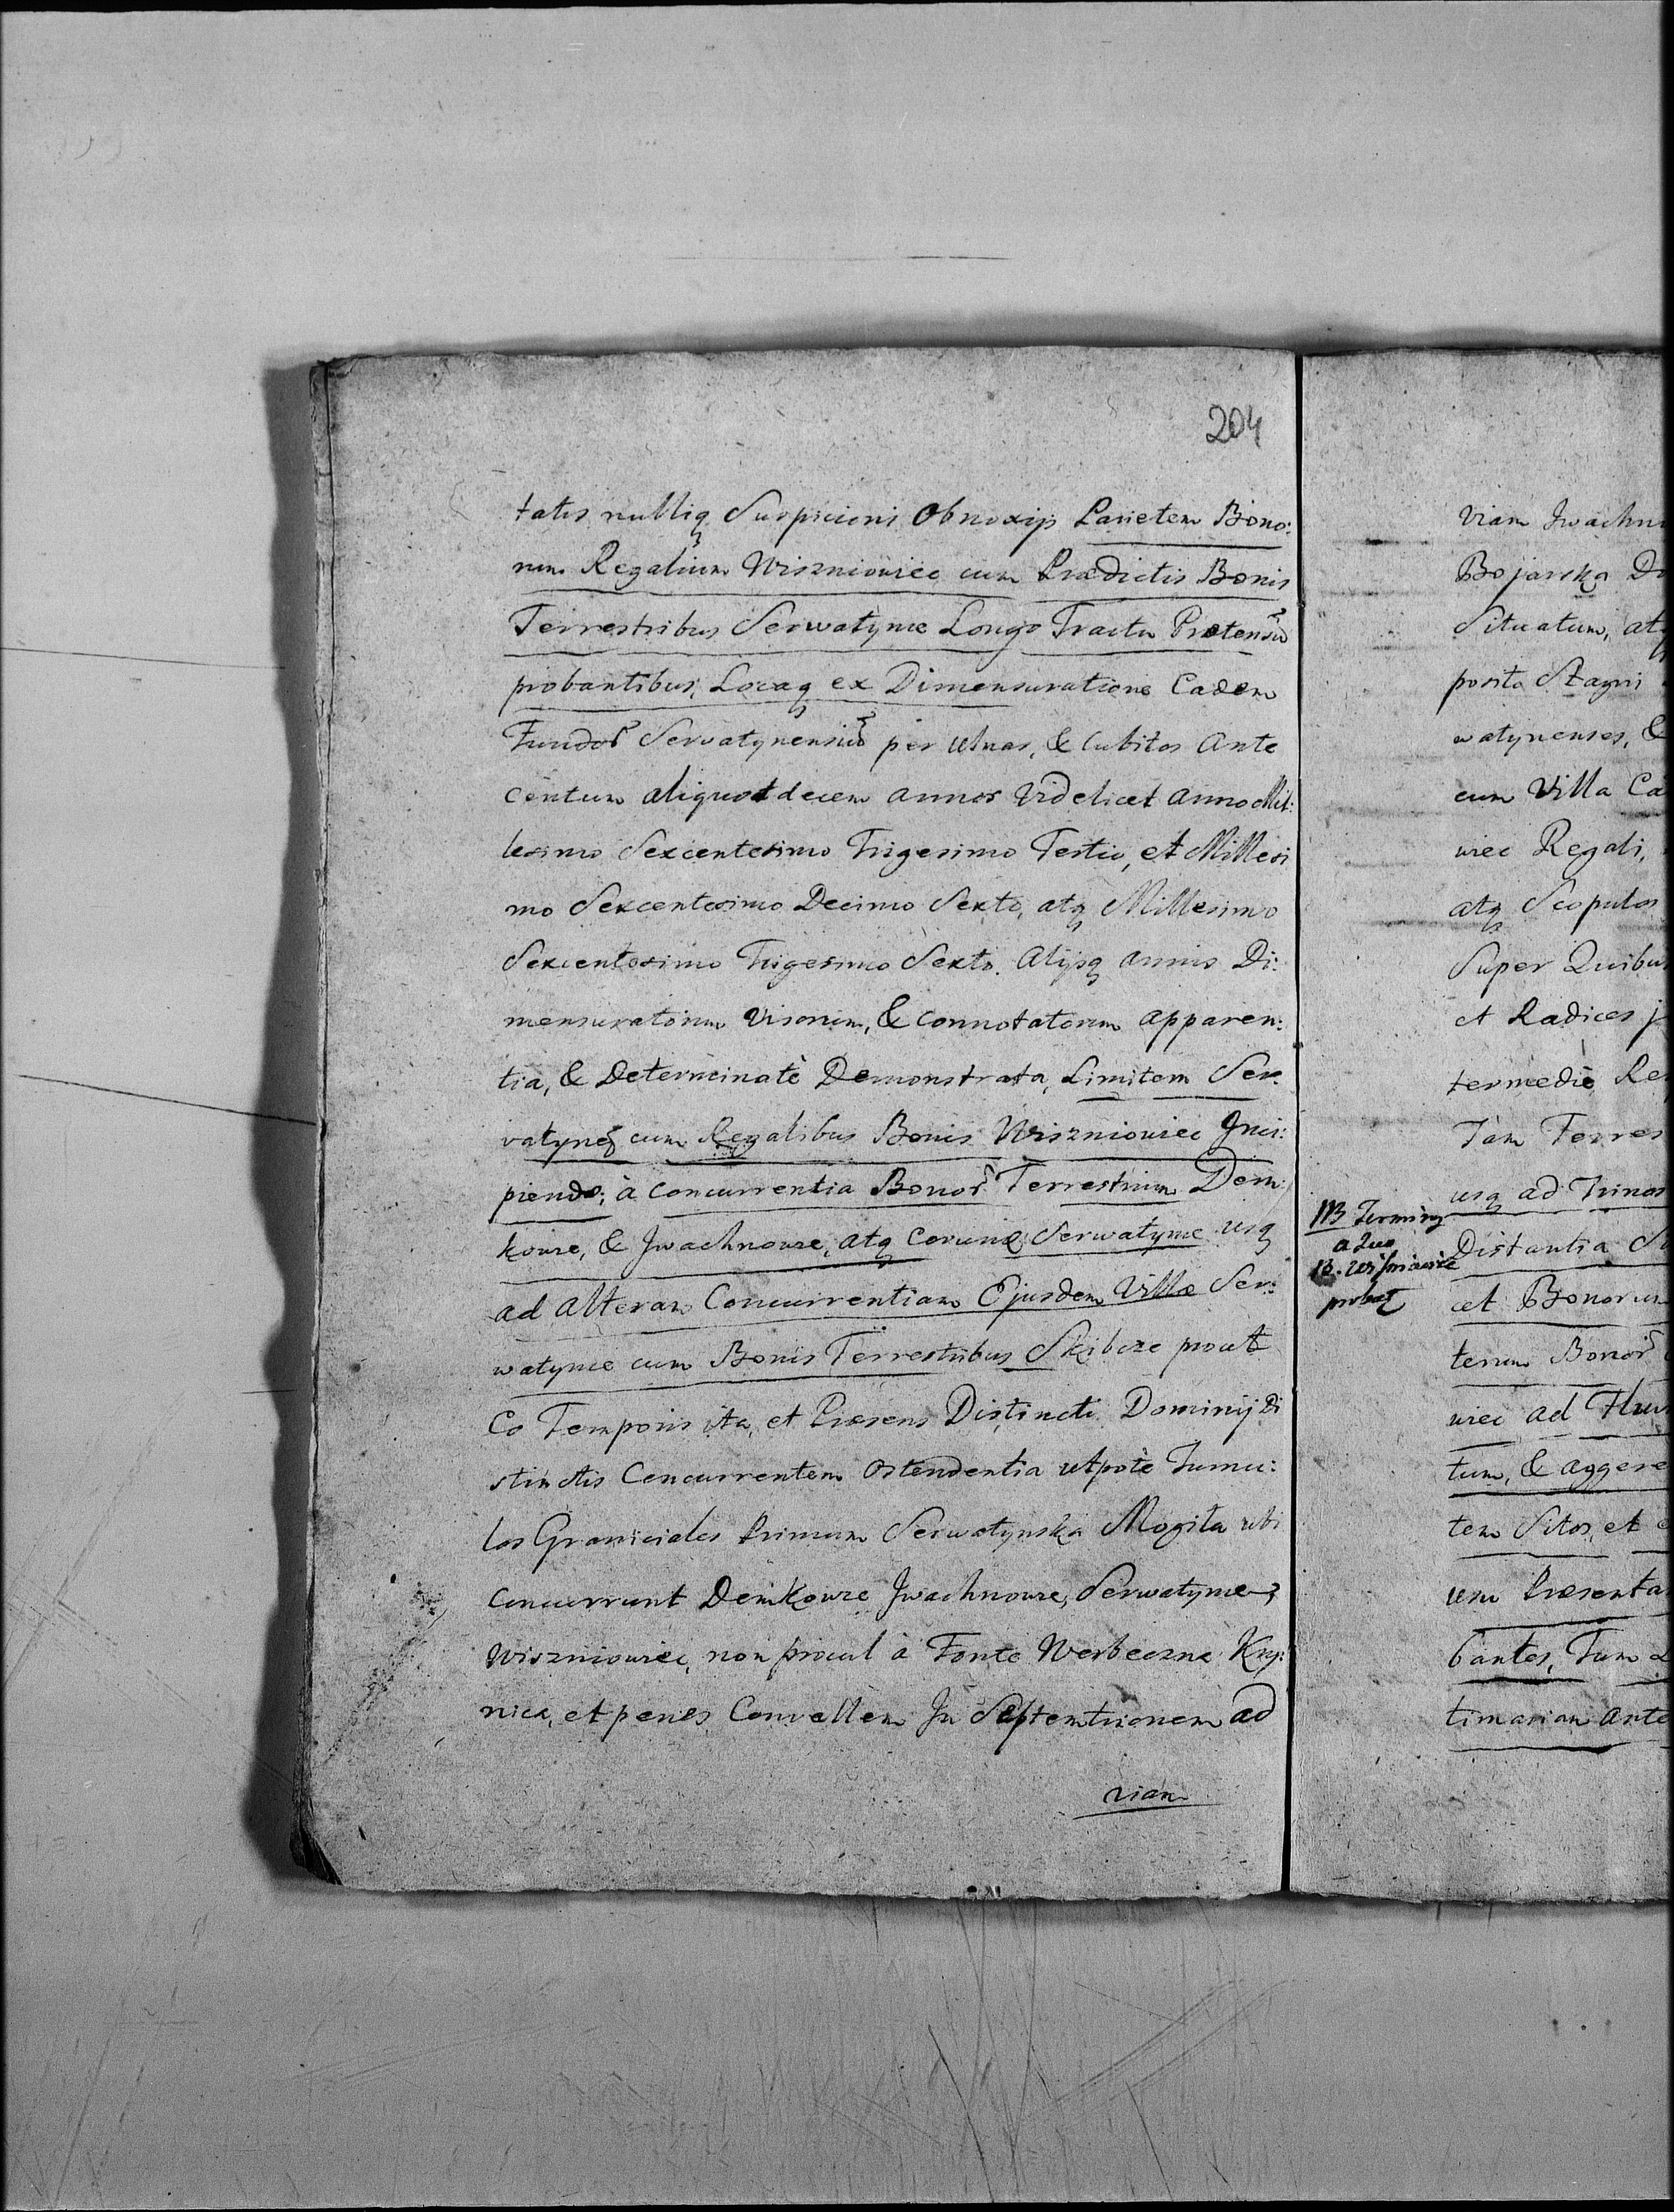 204
tatis nulliq Suspicioni Obnoxijs Parietem Bono:
rum Regalium Wiszniowiec cum Prædictis Bonis
Terrestribus Serwatynie Longo Tractu Protensũ
probantibus, Locaq ex Dimensuratione Eadem
Fundor Servatynensiũ per Ulnas, & Cubitos Ante
Centum aliquot decem annos Videlicet Anno Mil:
lesimo Sexcentesimo Trigesimo Tertio, et Millesi
mo Sexcentesimo Decimo Sexto, atq Millesimo
Sexcentesimo Trigesimo Sexto. Alijsq annis Di:
mensuratorum Visorum, & Connotatorum apparen:
tia, & Determinatè Demonstrata, Limitem Ser:
vatyneñ cum Regalibus Bonis Wiszniowiec Inci:
piendo; à Concurrentia Bonor Terrestrium Dem:
kowce, & Jwachnowce, atq Corundẽ Serwatynie usq
ad Alteram Concurrentiam Ejusdem Villæ Ser:
watynie cum Bonis Terrestribus Skibcze prout
Eo Temporis ita, et Præsens Distincti Dominij Di
stinctis Concurrentem Ostendentia utpotè Tumu:
los Graniciales Primum Serwatynska Mogila ubi
Concurrunt Demkowce Jwachnowce, Serwatynie,
Wiszniowiec, non procul à Fonte Werbeczna Kry:
nica, et penes Convallem In Septemtrionem ad
viam
viam Jwachn
Bojarska D
Situatum, atq
posita Stagni
watynenses, &
cum Villa Ca
wiec Regali,
atq Scopulos
Super Quibus
et Radices j
termediè Re
Tam Terres
usq ad Trinos
NB Terminq
a Quo
B. Wisniowiec
probat
Distantia Si
cet Bonorum
tenum Bonor
wiec ad Flu
tum, & Aggere
tem Sitos, et
usu Præsenta
bantes, Tum
timariam Ante